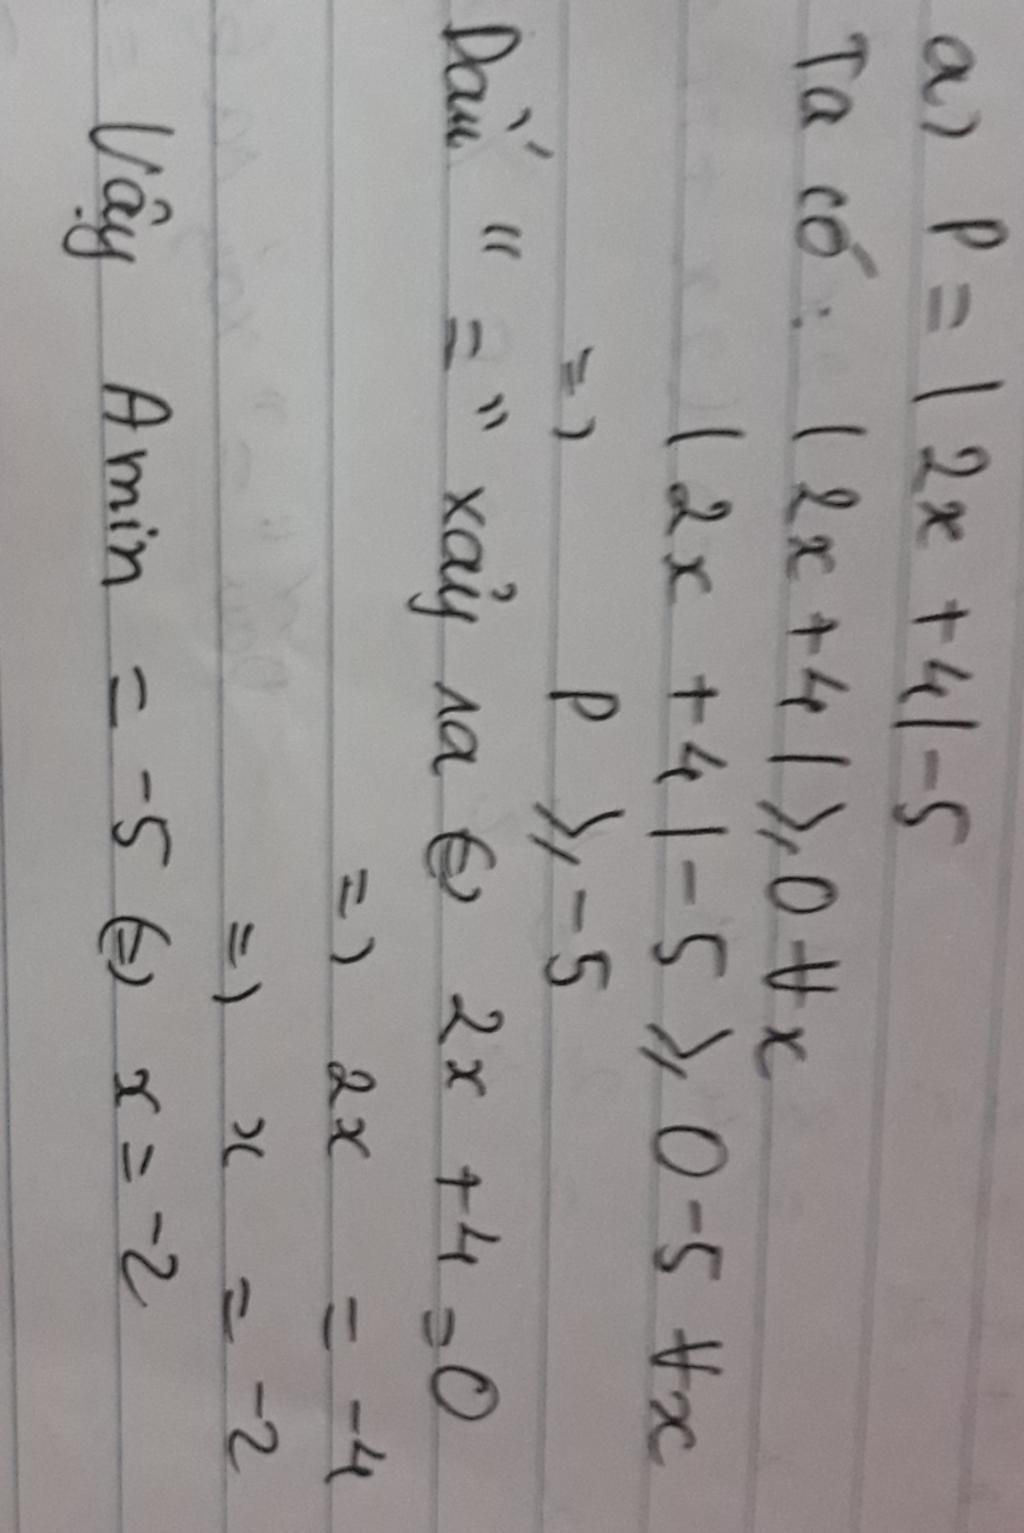 a) P = |2x + 4| - 5
Ta có: |2x + 4| ⩾ 0 ∀x
|2x + 4| - 5 ⩾ 0 - 5 ∀x
=> P ⩾ -5
Dấu "=" xảy ra <=> 2x + 4 = 0
=> 2x = -4
=> x = -2
Vậy Amin = -5 <=> x = -2